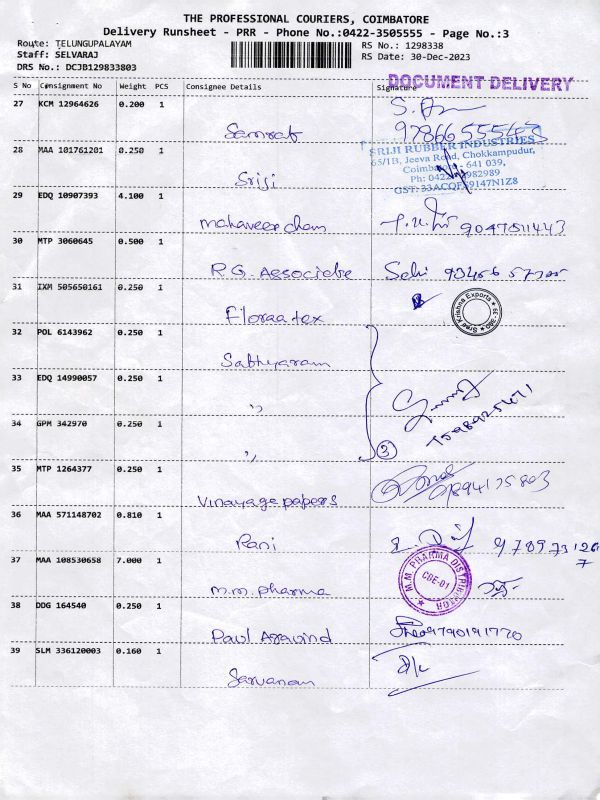 THE PROFESSIONAL COURIERS, COIMBATORE
Delivery Runsheet - PRR - Phone No.:0422-3505555 - Page No.:3
Route: TELUNGUPALAYAM
Staff: SELVARAJ
DRS No.: DCJB129833803
RS No.: 1298338
RS Date: 30-Dec-2023
DOCUMENT DELIVERY
S No Consignment No Weight PCS Consignee Details Signature
27 KCM 12964626 0.200 1
Samrat
28 MAA 101761201 0.250 1
SRIJI RUBBER INDUSTRIES
65/1B, Jeeva Road, Chokkampudur,
Coimbatore - 641 039,
Sriji
29 EDQ 10907393 4.100 1
Mahaveer cham 9047511443
30 MTP 3060645 0.500 1
R.G. Associate
31 IXM 505650161 0.250 1
Sree Krishna Exports
Floraa tex
32 POL 6143962 0.250 1
Sathyaram
33 EDQ 14990057 0.250 1
"
34 GPM 342970 0.250 1
"
3
35 MTP 1264377 0.250 1
Vinayage papers
36 MAA 571148702 0.810 1
Rani
37 MAA 108530658 7.000 1
M.M PHARMA DISTRIBUTOR
CBE-01
M.M. pharma
38 DDG 164540 0.250 1
Paul Aravind 9790191770
39 SLM 336120003 0.160 1
Sarvanan